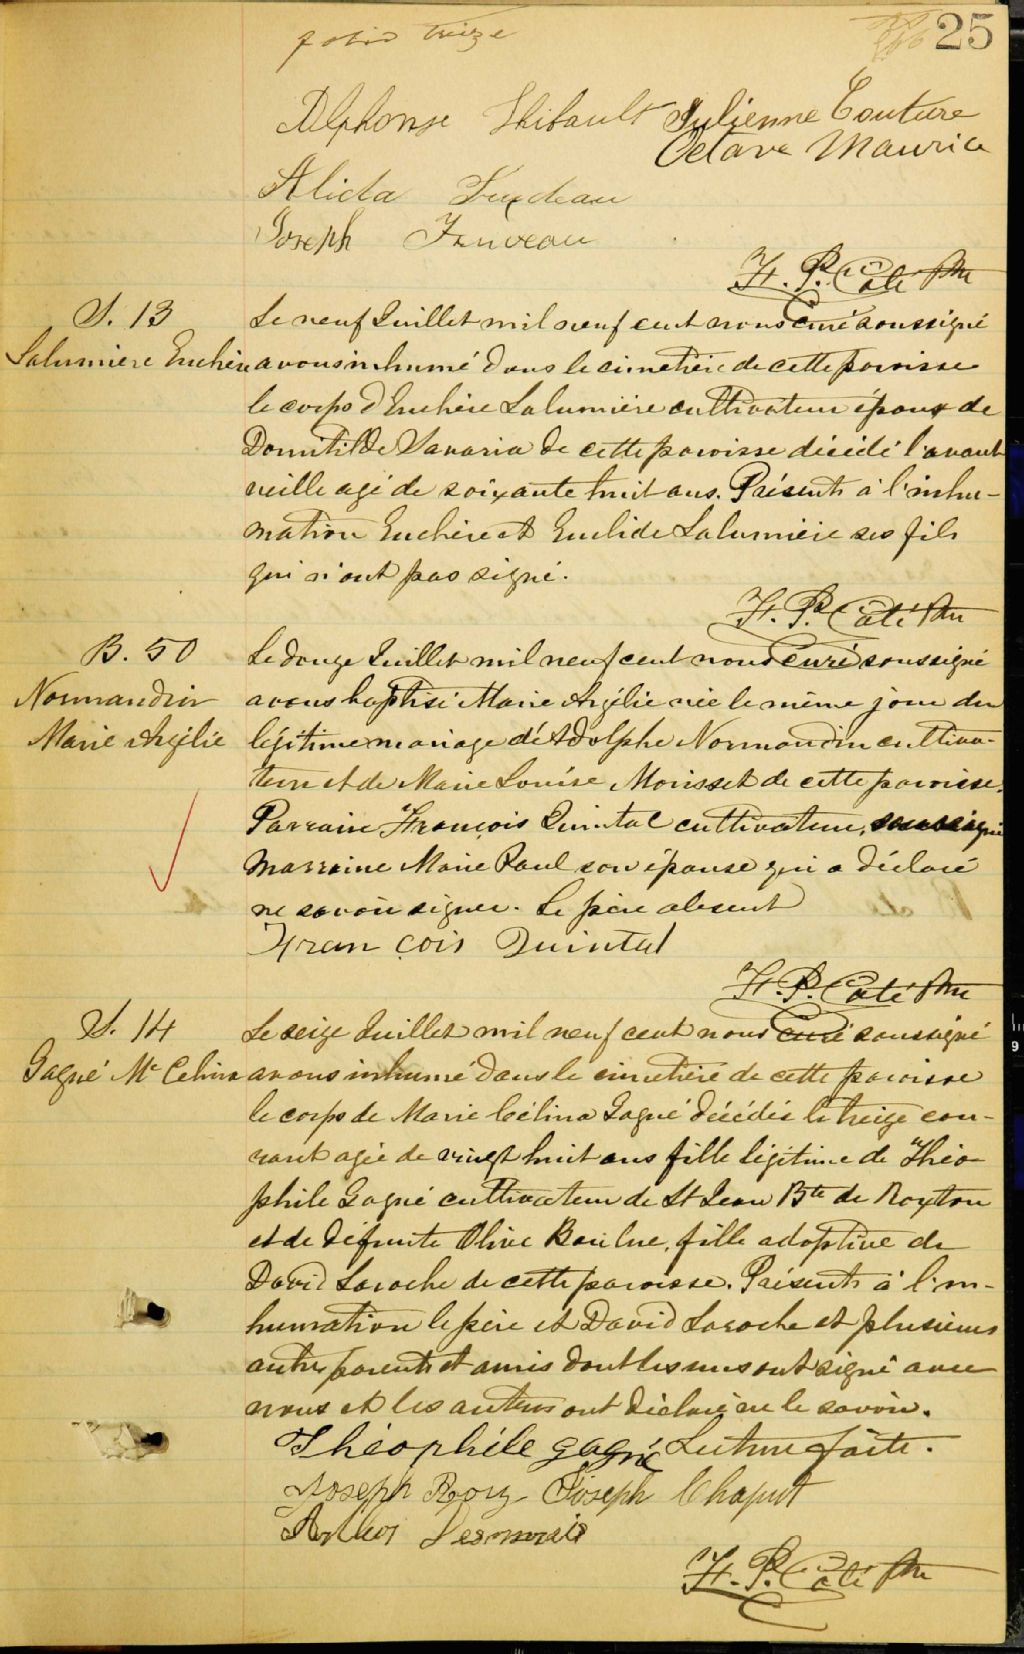 folio treize
25
Alphonse Thibault Julienne Couture
Octave Maurice
Alida
Joseph
F. P. Côté Ptre
S. 13
Lalumière Euchère
Le neuf Juillet mil neuf cent nous curé soussigné
avons inhumé dans le cimetière de cette paroisse
le corps d'Euchère Lalumière cultivateur époux de
Domitilde Savaria de cette paroisse décédé l'avant
veille agé de soixante huit ans. Présents à l'inhu-
mation Euchère et Euclide Lalumière ses fils
qui n'ont pas signé.
F. P. Côté Ptre
B. 50
Normandin
Marie Azélie
Le douze Juillet mil neuf cent nous curé soussigné
avons baptisé Marie Azélie née le même jour du
légitime mariage dé Adolphe Normandin cultiva-
teur et de Marie Louise Morisset de cette paroisse.
Parrain François Quintal cultivateur, soussigné
Marraine Marie Paul son épouse qui a déclaré
ne savoir signer. Le père absent
François Quintal
F. P. Côté Ptre
S. 14
Gagné Mie Celina
Le seize Juillet mil neuf cent nous curé soussigné
avons inhumé dans le cimetière de cette paroisse
le corps de Marie Célina Gagné décédée le treize cou-
rant agée de vingt huit ans fille légitime de Théo-
phile Gagné cultivateur de St Jean Bte de Roxton
et de défunte Olive Beaulne, fille adoptive de
David Laroche de cette paroisse. Présents à l'in-
humation le père et David Laroche et plusieurs
autres parents et amis dont les uns ont signé avec
nous et les autres ont déclaré ne le savoir.
Théophile Gagné Lecture faite.
Joseph Roy Joseph Chaput
Desmarais
F. P. Côté Ptre